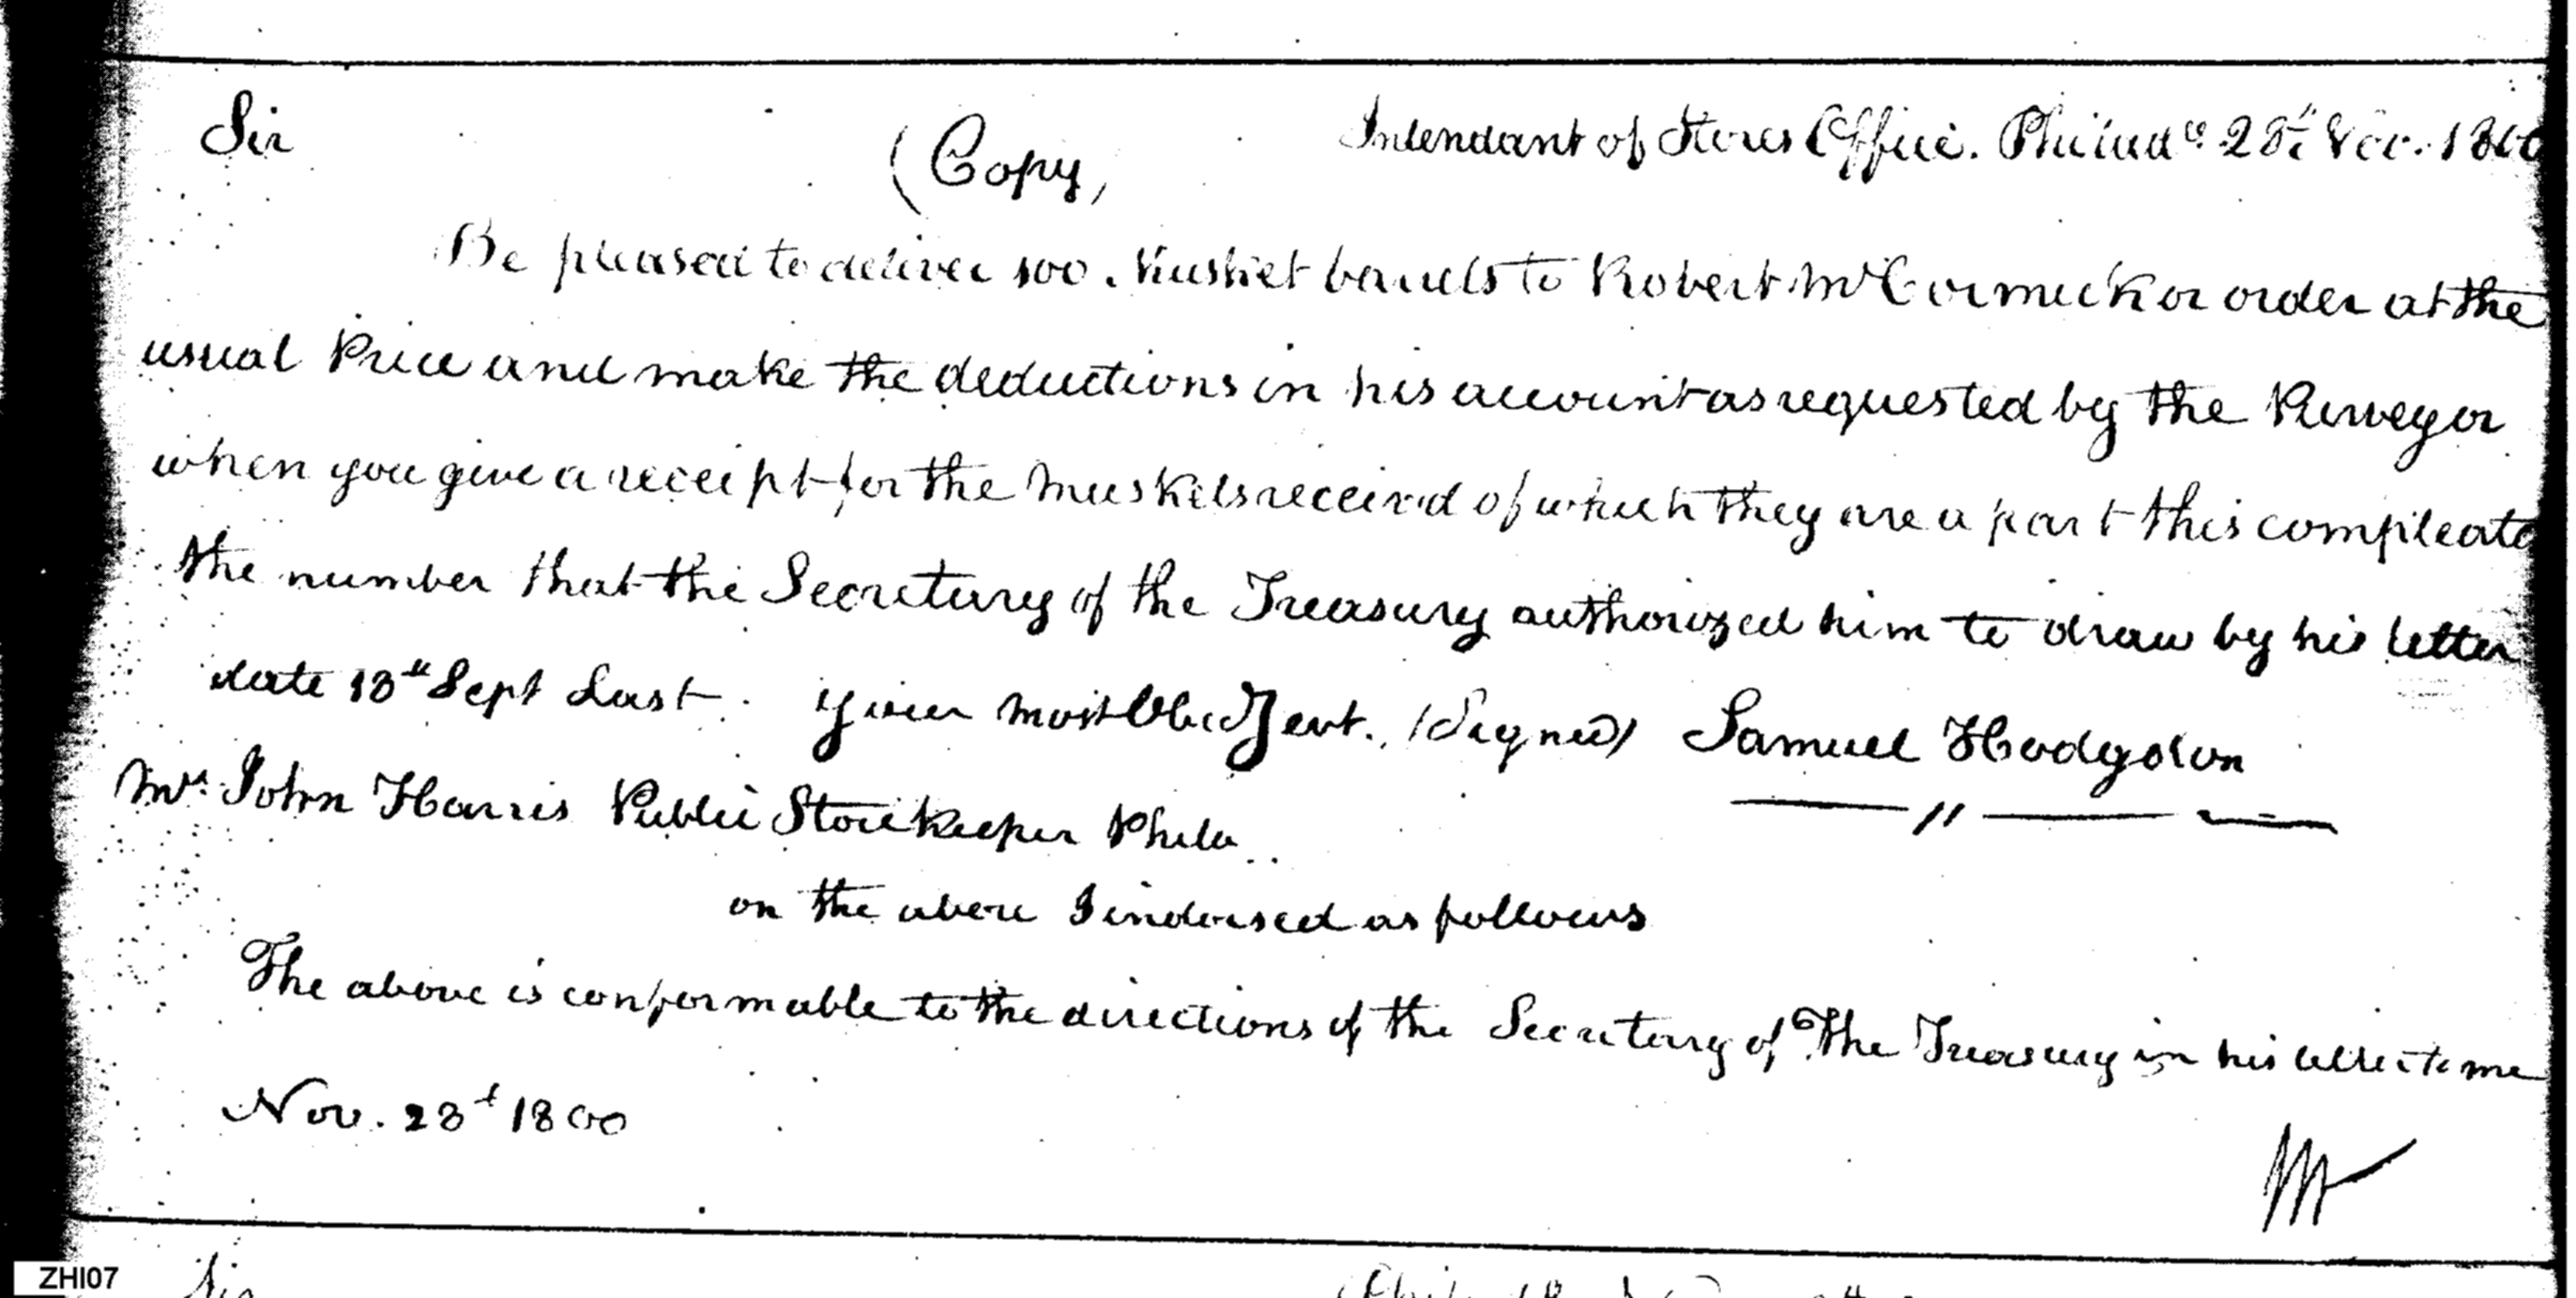 Sir
(Copy)
Intendant of Stores Office. Philad^a 28^t Nov. 1800
Be pleased to deliver 100. Musket barrels to Robert McCormick or order at the
usual Price and make the deductions in his account as requested by the Purveyor
when you give a receipt for the Muskets receivd of which they are a part this compleats
the number that the Secretary of the Treasury authorized him to draw by his letter
date 18^th Sept Last. your most Obed Sert. (Signed) Samuel Hodgdon
M^r. John Harris Public Storekeeper Phila..
on the above I indorsed as follows
The above is conformable to the directions of the Secretary of The Treasury in his letter to me
Nov. 28^t 1800
ZHI07
Sir